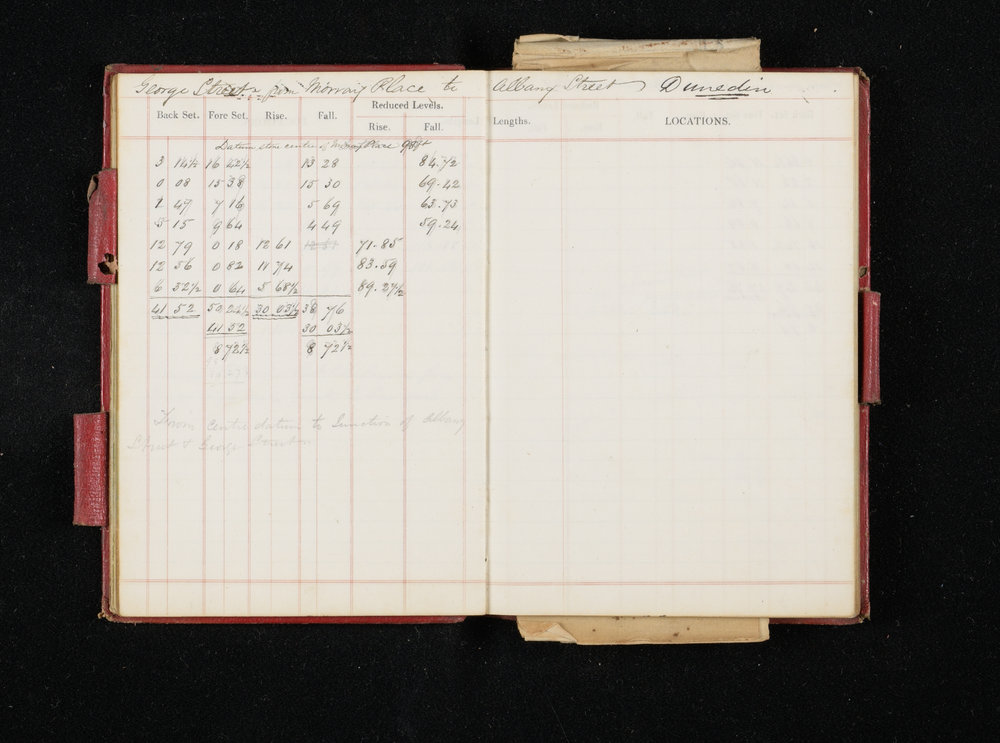 George Street from Morray Place to Albany Street Dunedin
Back Set. Fore Set. Rise. Fall. Reduced Levels. Lengths. LOCATIONS.
Rise. Fall.
Datum stone centre of Moray Place 98 ft
3 14½ 16 42½ 13 28 84.72
0 08 15 38 15 30 69.42
1 49 7 16 5 69 63.73
5 15 9 64 4 49 59.24
12 79 0 18 12 61 71.85
12 56 0 82 11 74 83.59
6 32½ 0 64 5 68½ 89.27½
41 52 50 24½ 30 03½ 38 76
41 52 30 03½
8 72½ 8 72½
From centre datum to Junction of Albany
Street & George Street